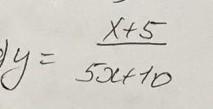 )y = x+5 / 5x+10